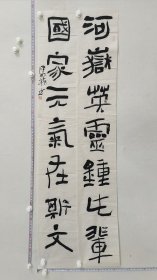 河嶽英靈鍾此輩
國家元氣在斯文